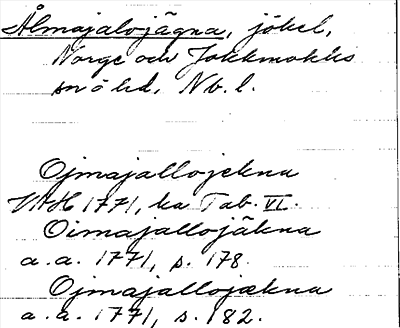 Ålmajalojägna, jökel,
Norge och Jokkmokks
sn o hd, Nb. l.
Ojmajallojekna
VAH 1771, ka Tab. VI.
Oimajallojäkna
a.a. 1771, s. 178.
Ojmajallojækna
a.a. 1771, s. 182.